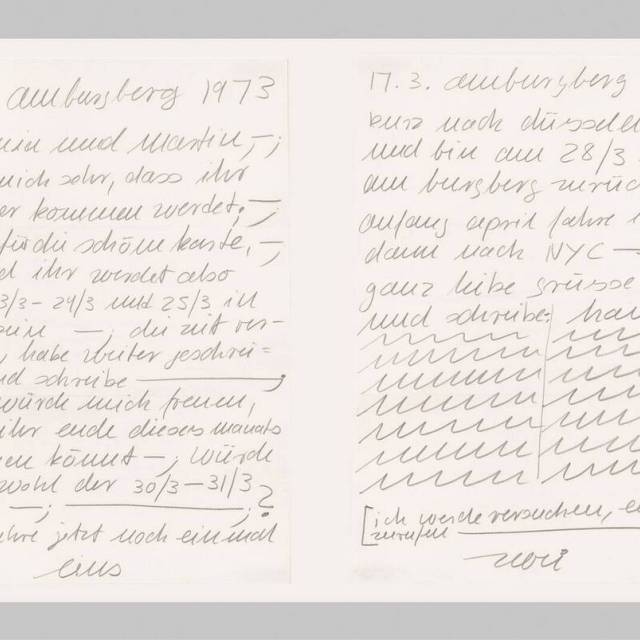 amburgberg 1973
und martin, –;
mich sehr, dass ihr
kommen werdet, –;
für die schöne karte, –;
ihr werdet also
3/3 – 24/3 und 25/3 in
–; die zeit ver-
, habe weiter geschrei=
nd schreibe ———,
würde mich freuen,
ihr ende dieses monats
en könnt –; würde
wohl der 30/3 – 31/3
–; ———; ?
jetzt noch einmal
eins
17. 3. amburgberg
kurz nach düsseld
und bin am 28/3.
am burgberg zurüc
anfang april fahre i
dann nach NYC —
ganz liebe grüsse
und schreibe; han
[ich werde versuchen, e
zurufen ———
zwei